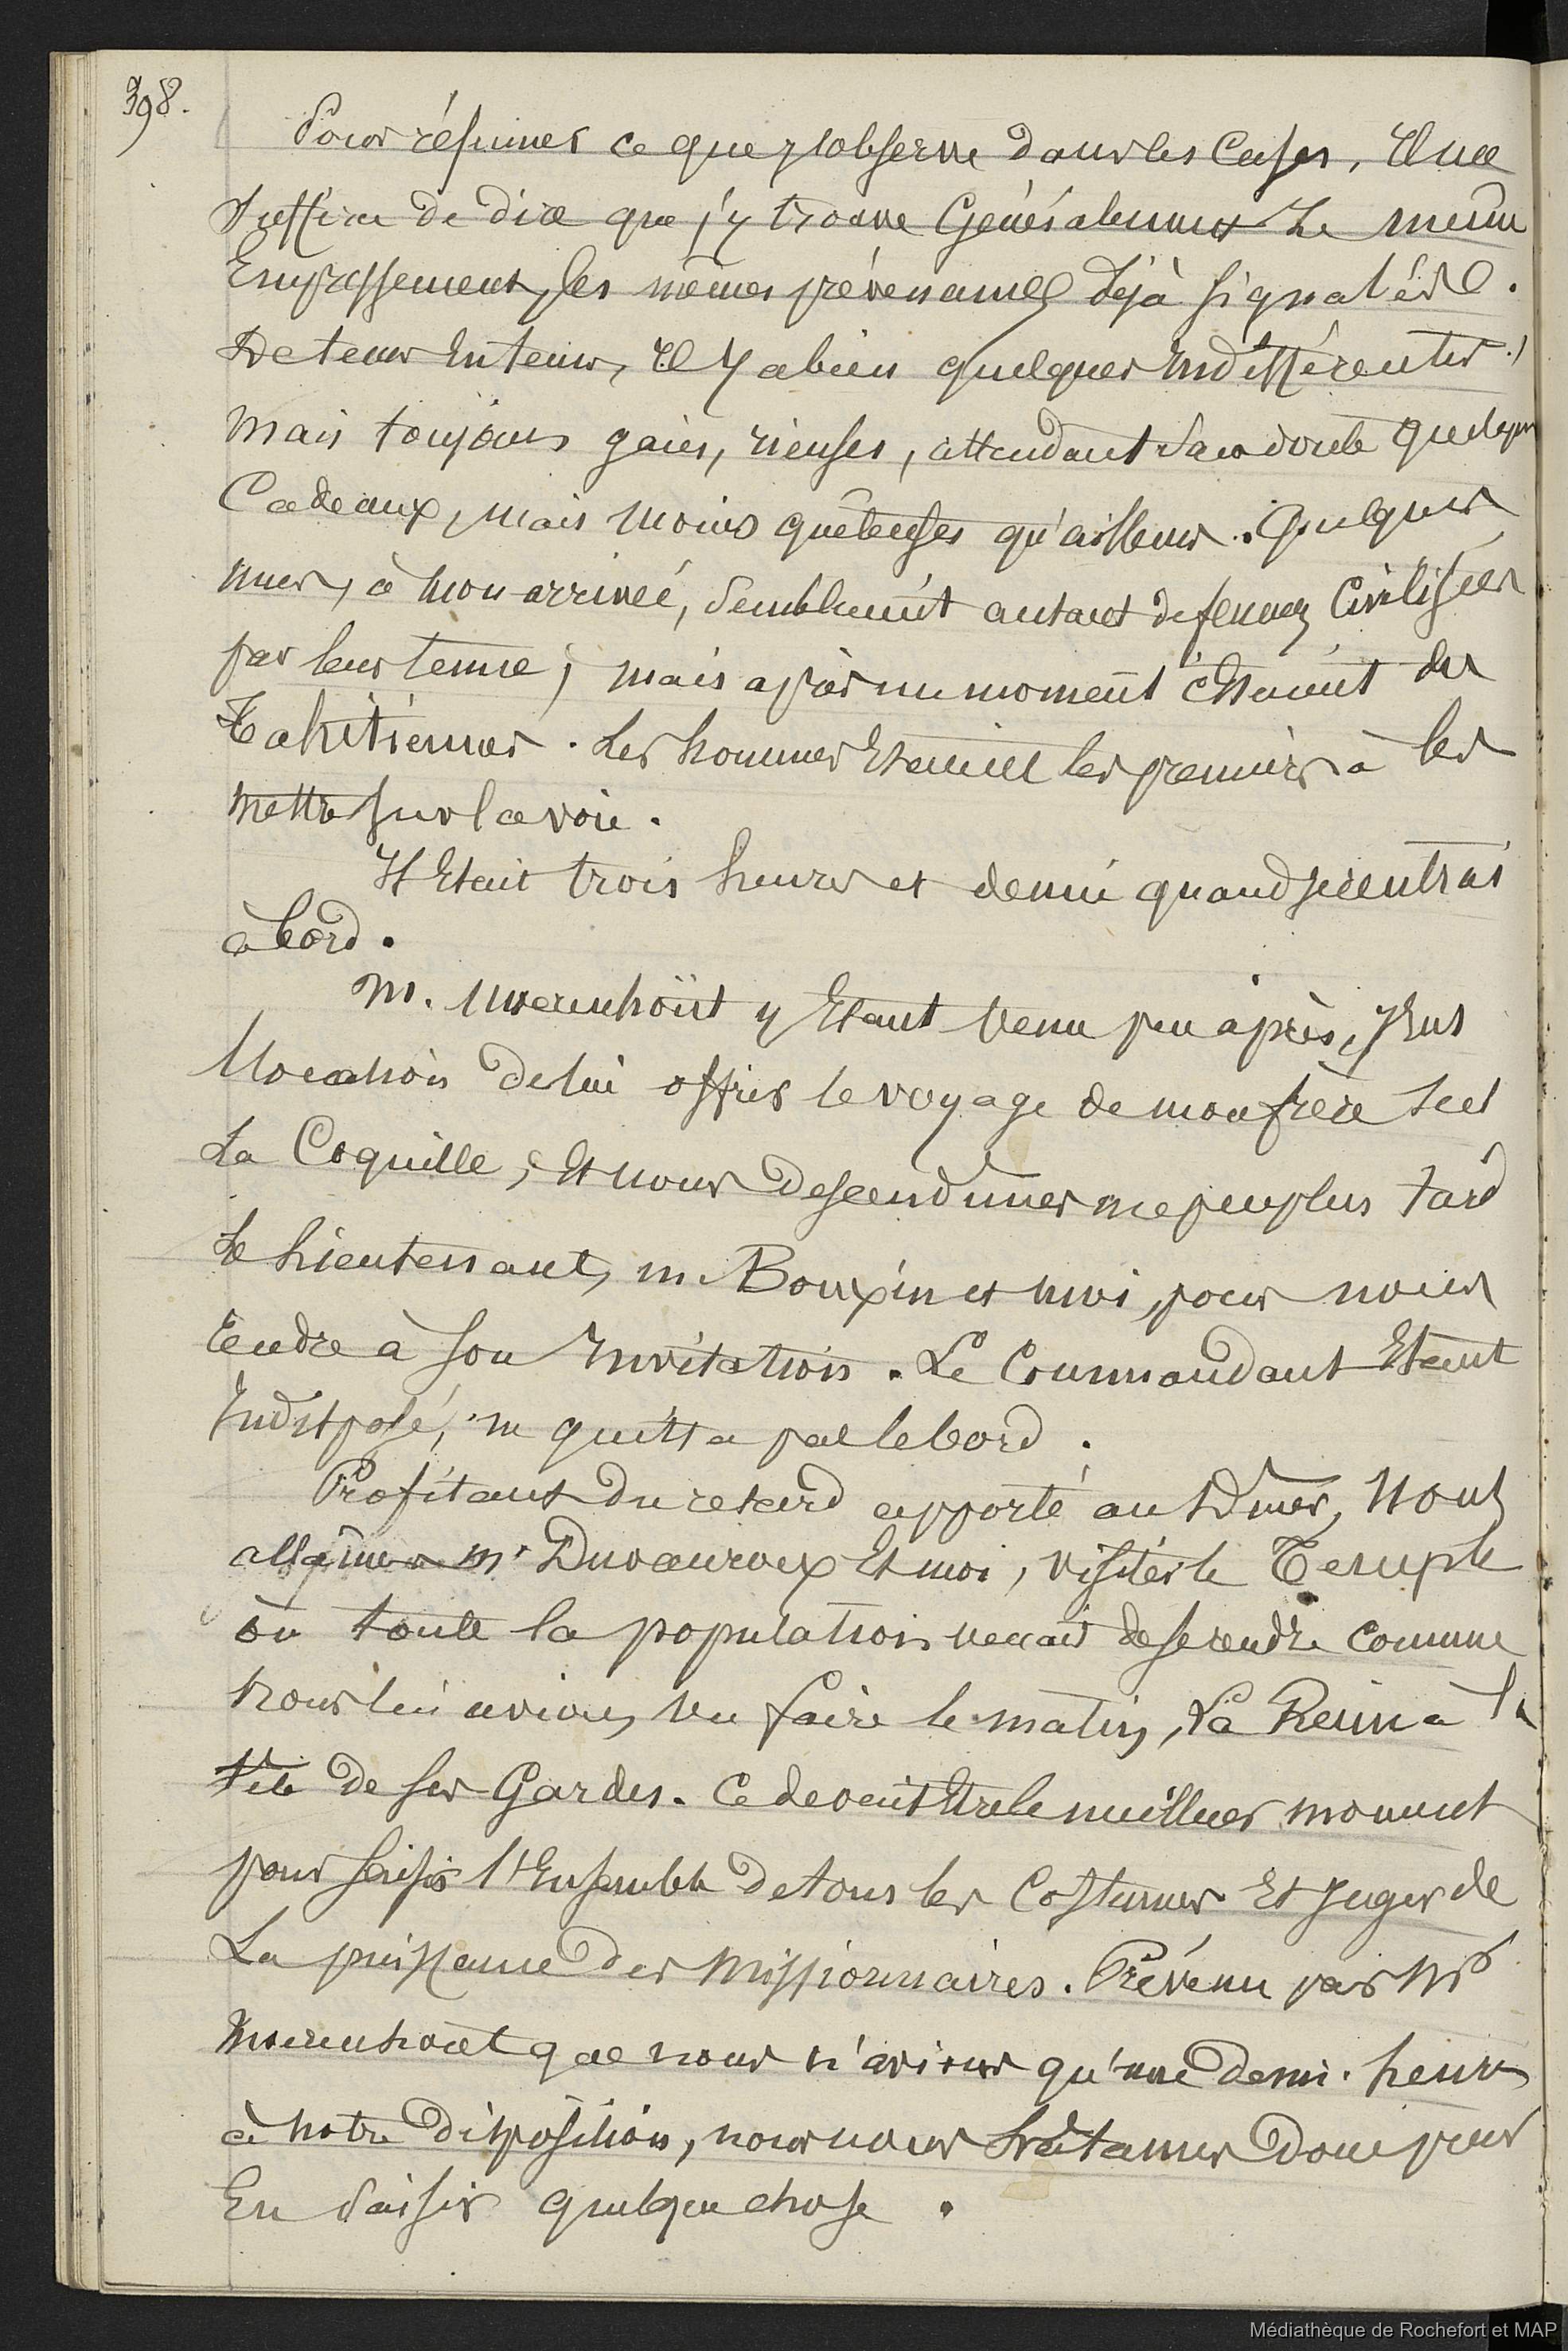 398.
Pour résumer ce que j'observe dans les Cases, Il me
suffira de dire que j'y trouve Généralement Le même
Empressement, les mêmes prévenances déjà signalées.
De tems En tems, Il y a bien quelques Indifférentes!
Mais toujours gaies, rieuses, attendant sans doute quelques
Cadeaux, mais moins quêteuses qu'ailleurs. Quelques
unes, à mon arrivée, semblaient autant de femmes Civilisées
par leur tenue; mais après un moment c'étaient des
Tahitiennes. Les hommes Etaient les premiers à les
mettre sur la voie.
Il Etait trois heures et demie quand je rentrai
à bord.
M. Moerenhoüt y Etant venu peu après, j'Eus
l'occasion de lui offrir le voyage de mon frère sur
La Coquille, Et nous descendimes un peu plus tard
Le Lieutenant, m. Bouxin et moi, pour nous
rendre à son Invitation. Le Commandant Etant
Indisposé, ne quitta pas le bord.
Profitant du retard apporté au Diner, Nous
allâmes Mr Duvauroux Et moi, visiter le Temple
où toute la population venait de se rendre comme
nous lui avions vu faire le matin, La Reine à la
tête de ses Gardes. Ce devait Etre le meilleur moment
pour saisir l'Ensemble de tous les Costumes Et juger de
La puissance des Missionnaires. Prévenu par Mr
Moerenhoüt que nous n'avions qu'une demi-heure
à notre disposition, nous nous hâtames donc pour
En saisir quelque chose.
Médiathèque de Rochefort et MAP